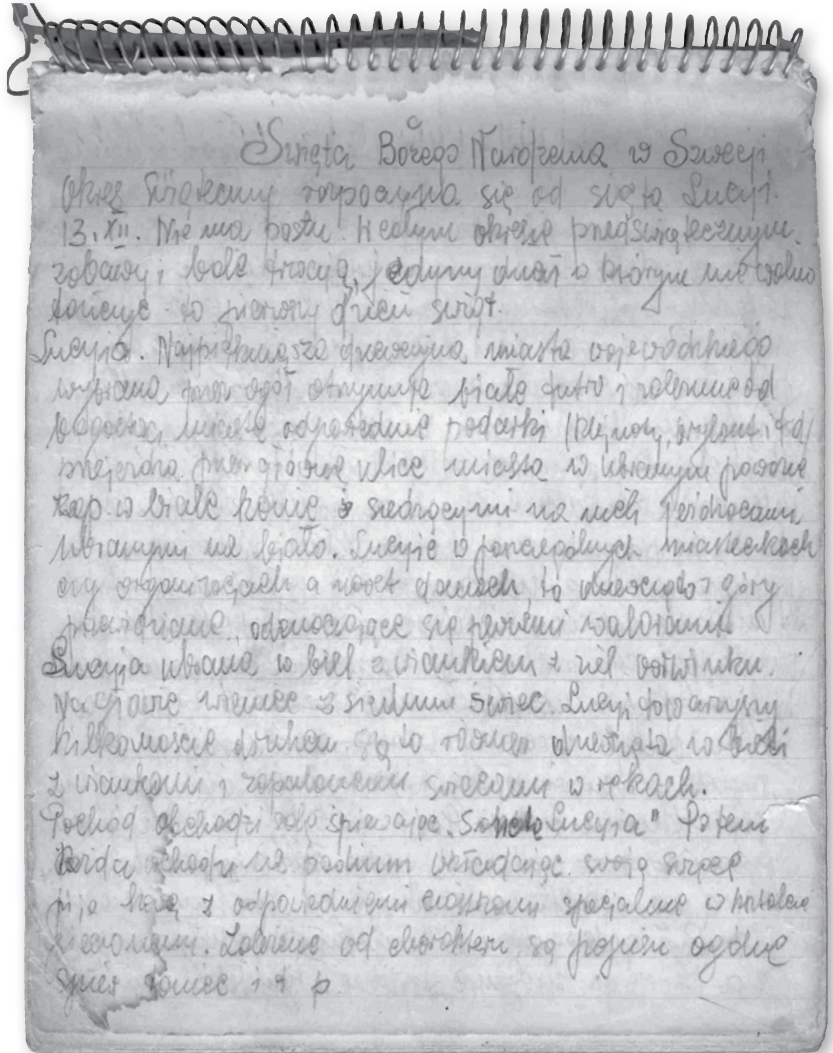 Święta Bożego Narodzenia w Szwecji
Okres świąteczny rozpoczyna się od święta Lucyi.
13.XII. Nie ma postu. W całym okresie przedświątecznym
zabawy i bale trwają, jedyny dzień w którym nie wolno
tańczyć to pierwszy dzień świąt.
Lucyja. Najpiękniejsza dziewczyna miasta wojewódzkiego
wybrana przez ogół otrzymuje białe futro i zależnie od
bogactwa miasta odpowiednie podarki (klejnoty, brylant i td)
przejeżdża przez główne ulice miasta w ubranym powozie
zap. w białe konie z siedzącymi na nich jeźdźcami
ubranymi na biało. Lucyje w poszczególnych miasteczkach
czy organizacjach a nawet domach są dziewczęta z góry
, odznaczające się pewnymi walorami.
Lucyja ubrana w biel z wiankiem z ziel barwinku.
Na głowie wieniec z siedmiu świec. Lucyi towarzyszy
kilkanaście druhen są to również dziewczęta w bieli
z wiankami i zapalonymi świecami w rękach.
Pochód obchodzi salę śpiewając "Santa Lucyja" Potem
każda schodzi na podium wkładając swoją świecę
piją kawę z odpowiednimi ciastkami specjalnie w kształcie
. Zależnie od charakteru są potem ogólne
śpiew taniec i t p